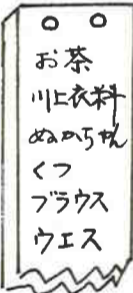 お茶
川上衣料
ぬかちゃん
くつ
ブラウス
ウエス